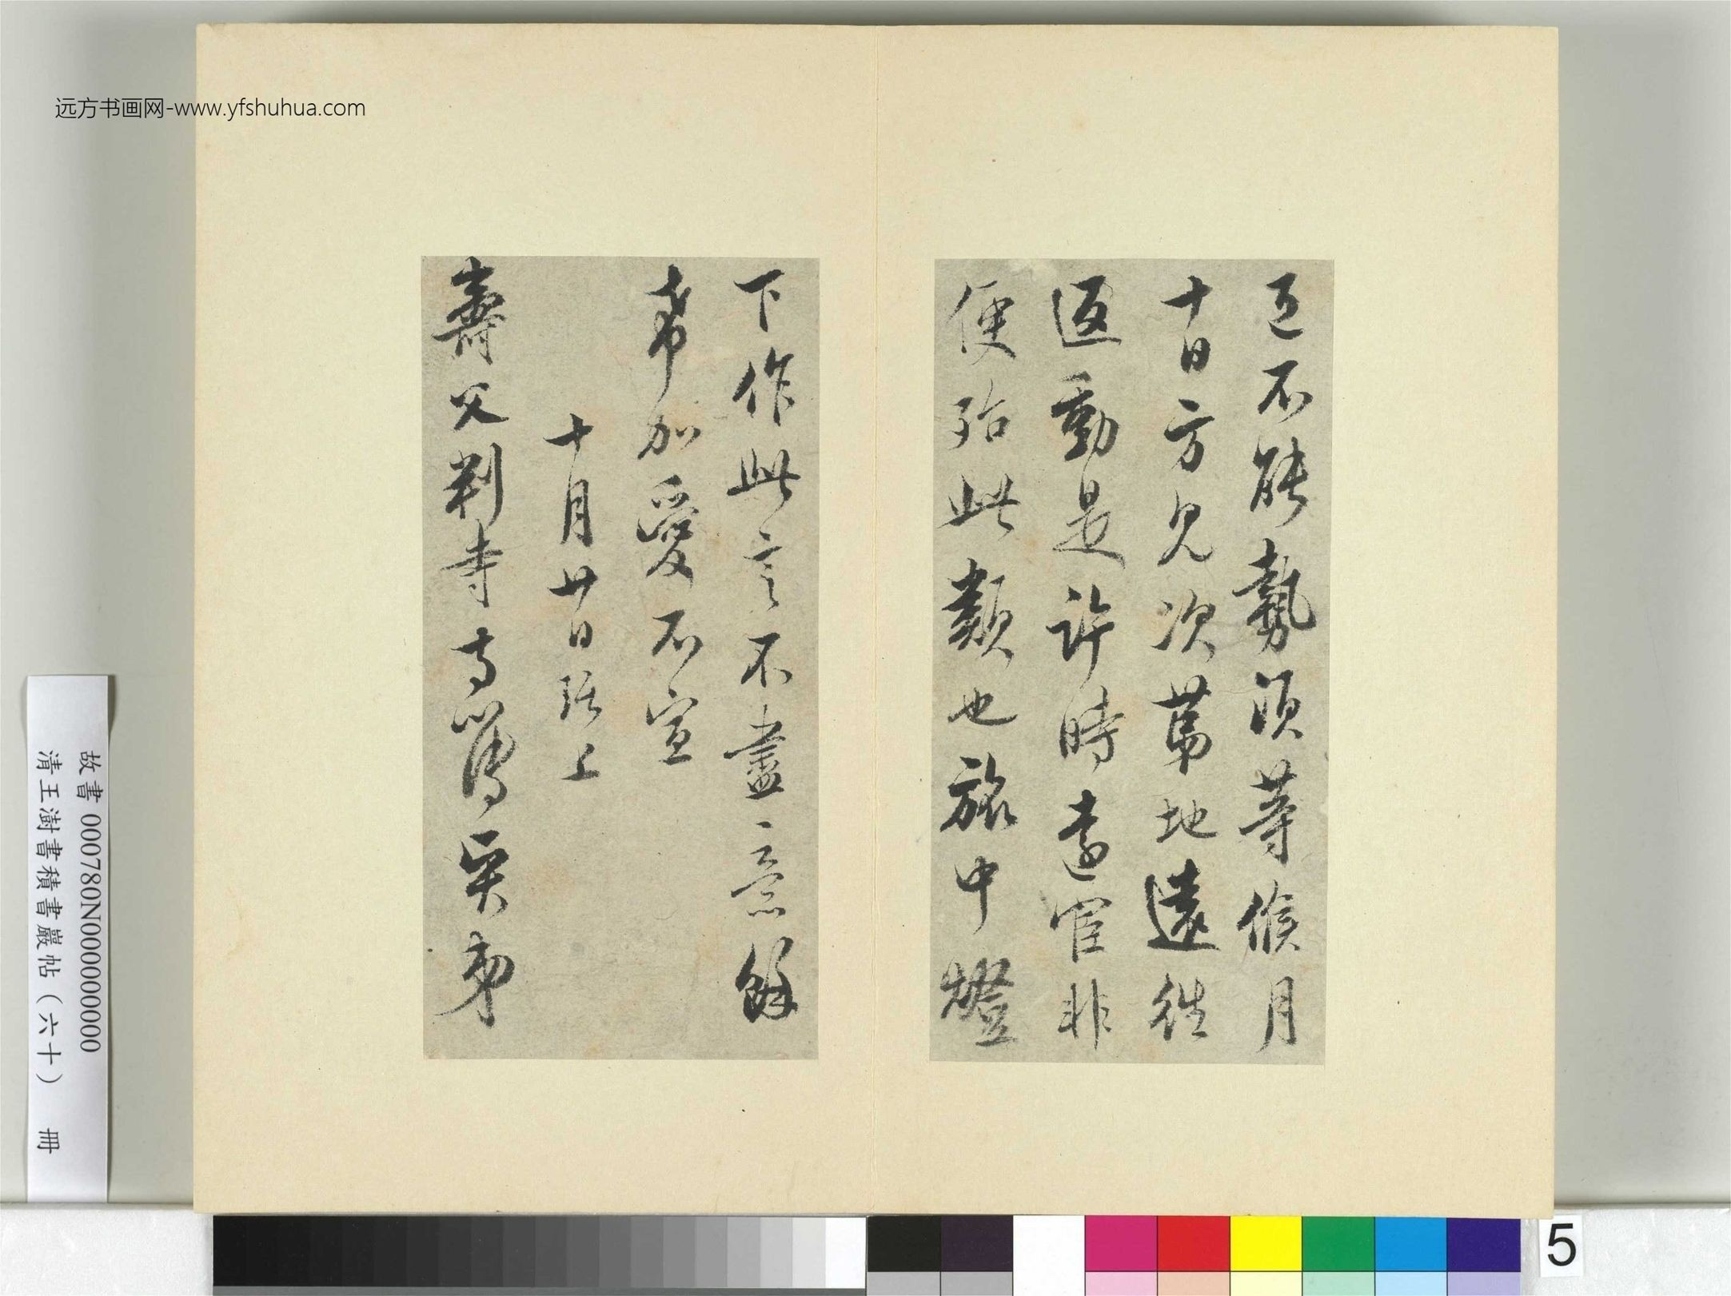 远方书画网-www.yfshuhua.com
不能 勢須等候月
十日方 次第地遠往
返動是許時遠官非
便殆此類也旅中燈
下作此言不盡意餘
希加愛不宣
十月廿日 上
壽父判寺 賢弟
故書 000780N000000000
清王澍書積書巖帖(六十) 冊
5